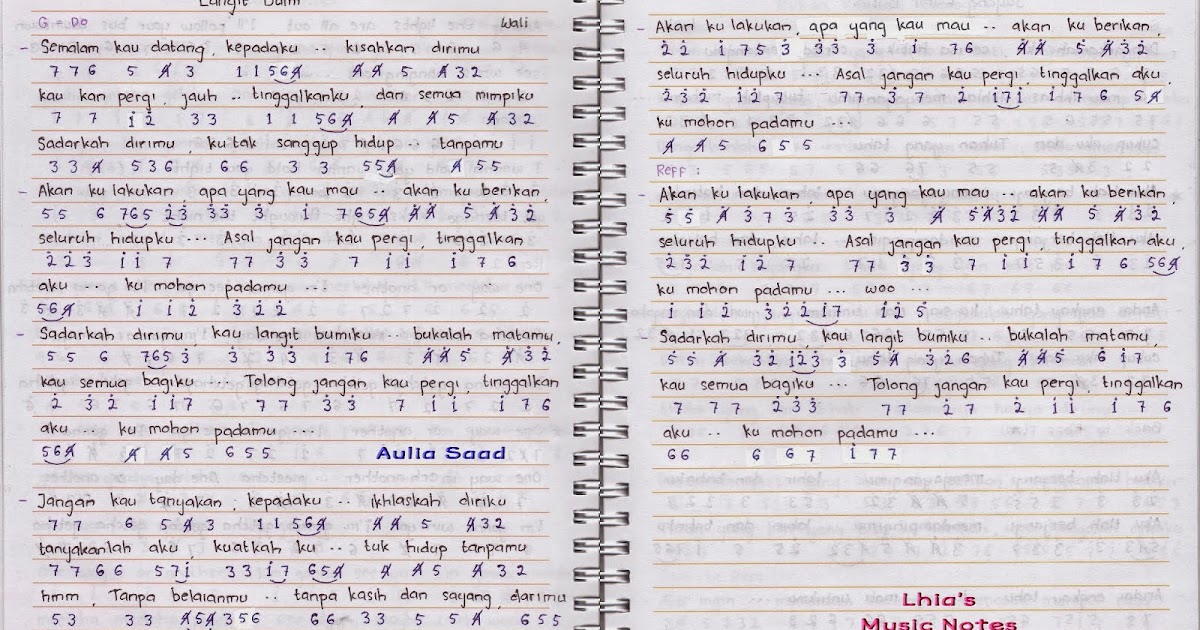 Langit Bumi
G = DO
Wali
- Semalam kau datang, kepadaku .. kisahkan dirimu
7 7 6 5 4 3 1 1 5 6 4 4 4 5 4 3 2
kau kan pergi, jauh .. tinggalkanku, dan semua mimpiku
7 7 1 2 3 3 1 1 5 6 4 4 4 5 4 3 2
Sadarkah dirimu, ku tak sanggup hidup .. tanpamu
3 3 4 5 3 6 6 6 3 3 5 5 4 4 5 5
- Akan ku lakukan, apa yang kau mau .. akan ku berikan,
5 5 6 7 6 5 2 3 3 3 3 1 7 6 5 4 4 4 5 4 3 2
seluruh hidupku ... Asal jangan kau pergi, tinggalkan
2 2 3 1 1 7 7 7 3 3 7 1 1 1 7 6
aku ... ku mohon padamu ...
5 6 4 1 1 2 3 2 2
- Sadarkah dirimu kau langit bumiku .. bukalah matamu,
5 5 6 7 6 5 3 3 3 3 1 7 6 4 4 5 4 3 2
kau semua bagiku ... Tolong jangan kau pergi, tinggalkan
2 3 2 1 1 7 7 7 3 3 7 1 1 1 7 6
aku ... ku mohon padamu ....
5 6 4 4 4 5 6 5 5
Aulia Saad
- Jangan kau tanyakan, kepadaku .. ikhlaskah diriku
7 7 6 5 4 3 1 1 5 6 4 4 4 5 4 3 2
tanyakanlah aku kuatkah ku .. tuk hidup tanpamu
7 7 6 6 5 7 1 3 3 1 7 6 5 4 4 4 5 4 3 2
hmm, Tanpa belaianmu .. tanpa kasih dan sayang, darimu
5 3 3 3 4 5 4 3 5 6 6 6 3 3 5 4 6 5 5
- Akan ku lakukan, apa yang kau mau .. akan ku berikan,
2 2 1 7 5 3 3 3 3 1 7 6 4 4 5 4 3 2
seluruh hidupku ... Asal jangan kau pergi, tinggalkan aku
2 3 2 1 2 7 7 7 3 7 2 1 7 1 1 7 6 5 4
ku mohon padamu ...
4 4 5 6 5 5
Reff :
- Akan ku lakukan, apa yang kau mau .. akan ku berikan,
5 5 4 3 7 3 3 3 3 4 5 4 3 2 4 4 5 4 3 2
seluruh hidupku ... Asal jangan kau pergi, tinggalkan aku,
2 3 2 1 2 7 7 7 3 3 7 1 1 1 7 6 5 6 4
ku mohon padamu ... woo ...
1 1 2 3 2 2 1 7 1 2 5
Sadarkah dirimu, kau langit bumiku .. bukalah matamu,
5 5 4 3 2 1 2 3 3 5 4 3 2 6 4 4 5 6 1 7
kau semua bagiku ... Tolong jangan kau pergi, tinggalkan
7 7 7 2 3 3 7 7 2 7 2 1 1 1 7 6
aku .. ku mohon padamu ...
6 6 6 6 7 1 7 7
Lhia's
Music Notes